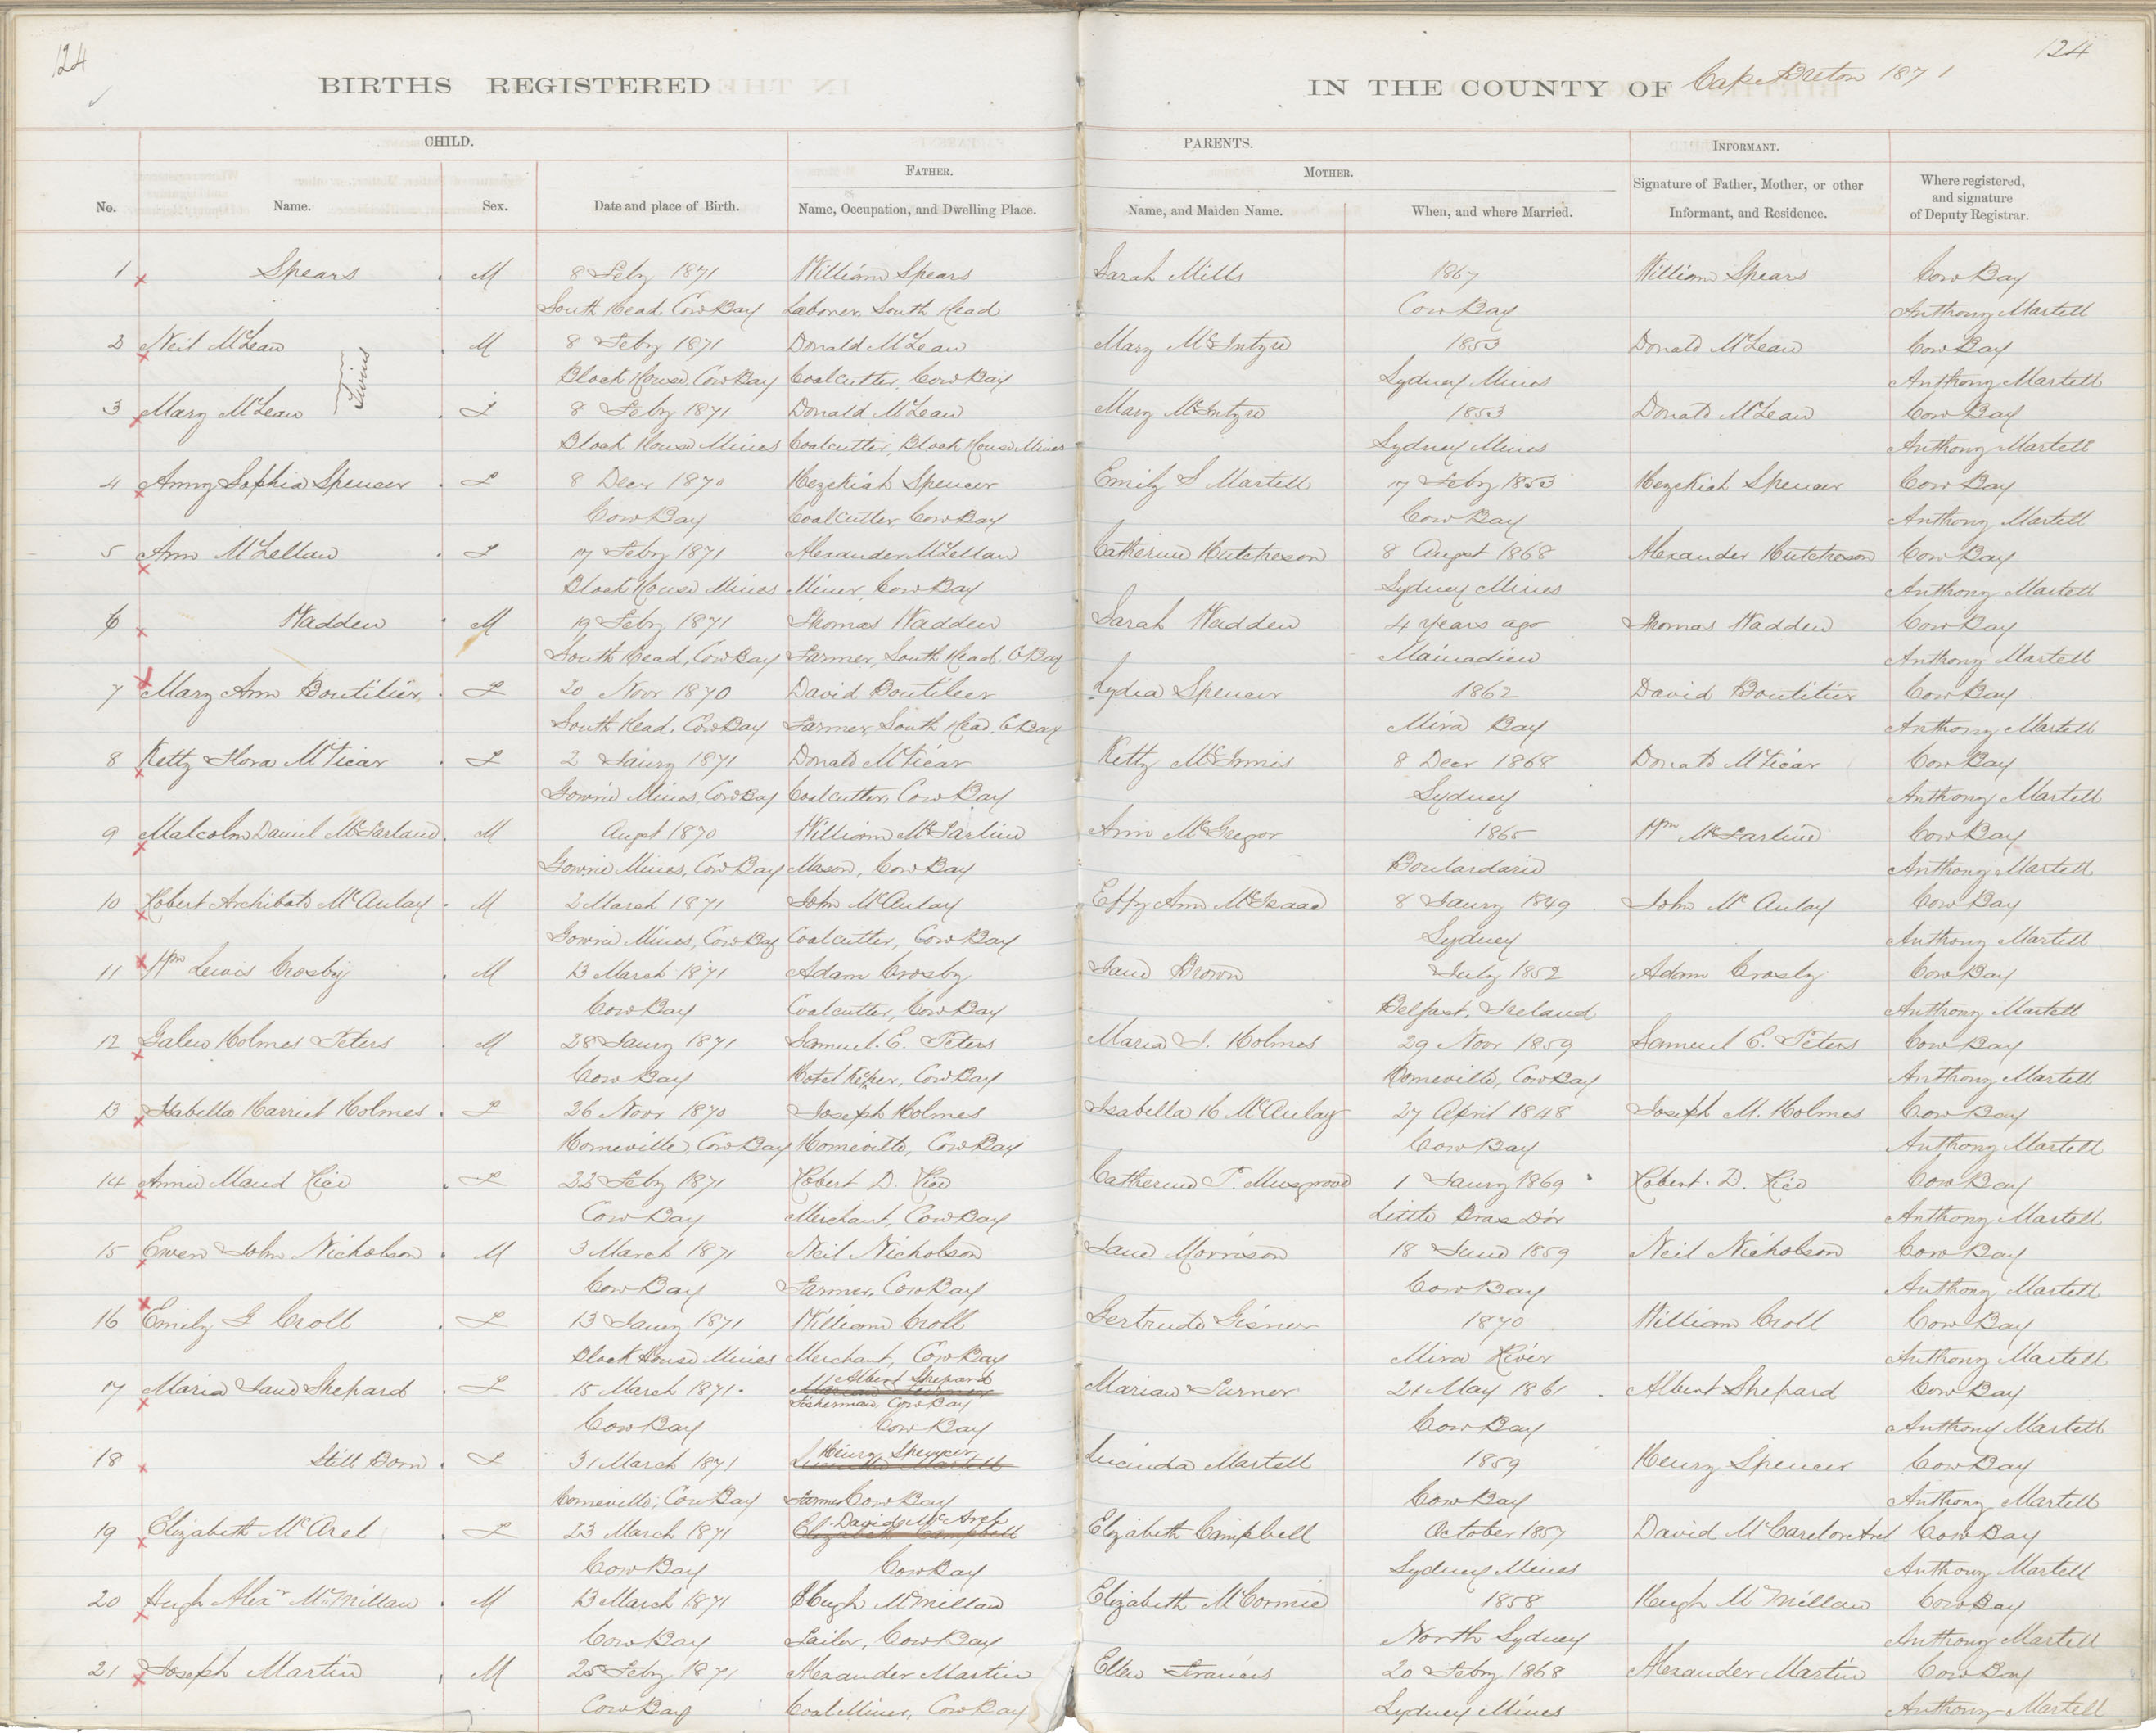 124
124
BIRTHS REGISTERED IN THE COUNTY OF Cape Breton 1871
CHILD. PARENTS. INFORMANT.
FATHER. MOTHER.
No. Name. Sex. Date and place of Birth. Name, Occupation, and Dwelling Place. Name, and Maiden Name. When, and where Married. Signature of Father, Mother, or other Informant, and Residence. Where registered, and signature of Deputy Registrar.
1 Spears M 8 Feby 1871 William Spears Sarah Mills 1867 William Spears Cow Bay
South Head, Cow Bay Laborer, South Head Cow Bay Anthony Martell
2 Neil McLean M 8 Feby 1871 Donald McLean Mary McIntyre 1853 Donald McLean Cow Bay
Twins
Block House, Cow Bay Coalcutter, Cow Bay Sydney Mines Anthony Martell
3 Mary McLean F 8 Feby 1871 Donald McLean Mary McIntyre 1853 Donald McLean Cow Bay
Block House Mines Coalcutter, Block House Mines Sydney Mines Anthony Martell
4 Anny Sophia Spencer F 8 Decr 1870 Hezekiah Spencer Emily S Martell 17 Feby 1853 Hezekiah Spencer Cow Bay
Cow Bay Coalcutter, Cow Bay Cow Bay Anthony Martell
5 Ann McLellan F 17 Feby 1871 Alexander McLellan Catherine Hutcheson 8 Augst 1868 Alexander Hutcheson Cow Bay
Block House Mines Miner, Cow Bay Sydney Mines Anthony Martell
6 Wadden M 19 Feby 1871 Thomas Wadden Sarah Wadden 4 years ago Thomas Wadden Cow Bay
South Head, Cow Bay Farmer, South Head, C Bay Mainadieu Anthony Martell
7 Mary Ann Boutilier F 20 Novr 1870 David Boutilier Lydia Spencer 1862 David Boutilier Cow Bay
South Head, Cow Bay Farmer, South Head, C Bay Mira Bay Anthony Martell
8 Ketty Flora McVicar F 2 Jany 1871 Donald McVicar Ketty McInnis 8 Decr 1868 Donald McVicar Cow Bay
Gowrie Mines, Cow Bay Coalcutter, Cow Bay Sydney Anthony Martell
9 Malcolm Daniel McFarland M Augst 1870 William McFarline Ann McGregor 1865 Wm McFarline Cow Bay
Gowrie Mines, Cow Bay Mason, Cow Bay Boulardarie Anthony Martell
10 Robert Archibald McAulay M 2 March 1871 John McAulay Effy Ann McIsaac 8 Jany 1849 John McAulay Cow Bay
Gowrie Mines, Cow Bay Coalcutter, Cow Bay Sydney Anthony Martell
11 Wm Lewis Crosby M 13 March 1871 Adam Crosby Jane Brown July 1852 Adam Crosby Cow Bay
Cow Bay Coalcutter, Cow Bay Belfast, Ireland Anthony Martell
12 Galen Holmes Peters M 28 Jany 1871 Samuel. E. Peters Maria J. Holmes 29 Novr 1859 Samuel E. Peters Cow Bay
Cow Bay Hotel Keeper, Cow Bay Homeville, Cow Bay Anthony Martell
13 Isabella Harriet Holmes F 26 Novr 1870 Joseph Holmes Isabella H McAulay 27 April 1848 Joseph M. Holmes Cow Bay
Homeville, Cow Bay Homeville, Cow Bay Cow Bay Anthony Martell
14 Annie Maud Rice F 22 Feby 1871 Robert D. Rice Catherine P. Musgrove 1 Jany 1869 Robert. D. Rice Cow Bay
Cow Bay Merchant, Cow Bay Little Bras Dór Anthony Martell
15 Ewen John Nicholson M 3 March 1871 Neil Nicholson Jane Morrison 18 June 1859 Neil Nicholson Cow Bay
Cow Bay Farmer, Cow Bay Cow Bay Anthony Martell
16 Emily G Croll F 13 Jany 1871 William Croll Gertrude Gisner 1870 William Croll Cow Bay
Block House Mines Merchant, Cow Bay Mira River Anthony Martell
17 Maria Jane Shepard F 15 March 1871. Albert Shepard Marian Turner Marian Turner 21 May 1861 Albert Shepard Cow Bay
Fisherman, Cow Bay
Cow Bay Cow Bay Cow Bay Anthony Martell
18 Still Born F 31 March 1871 Henry Spencer Lucinda Martell Lucinda Martell 1859 Henry Spencer Cow Bay
Homeville, Cow Bay Farmer Cow Bay Cow Bay Anthony Martell
19 Elizabeth McArel F 23 March 1871 David McArel Elizabeth Campbell Elizabeth Campbell October 1857 David McCarel or Arel Cow Bay
Cow Bay Cow Bay Sydney Mines Anthony Martell
20 Hugh Alexr McMillan M 13 March 1871 Hugh McMillan Elizabeth McCormic 1858 Hugh McMillan Cow Bay
Cow Bay Sailor, Cow Bay North Sydney Anthony Martell
21 Joseph Martin M 25 Feby 1871 Alexander Martin Ellen Francis 20 Feby 1868 Alexander Martin Cow Bay
Cow Bay Coal Miner, Cow Bay Sydney Mines Anthony Martell